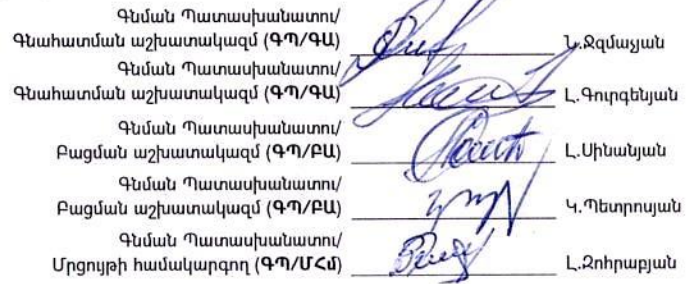 Գնման Պատասխանատու/
Գնահատման աշխատակազմ (ԳՊ/ԳԱ) Ն.Ջզմաչյան
Գնման Պատասխանատու/
Գնահատման աշխատակազմ (ԳՊ/ԳԱ) Լ.Գուրգենյան
Գնման Պատասխանատու/
Բացման աշխատակազմ (ԳՊ/ԲԱ) Լ.Սինանյան
Գնման Պատասխանատու/
Բացման աշխատակազմ (ԳՊ/ԲԱ) Կ.Պետրոսյան
Գնման Պատասխանատու/
Մրցույթի համակարգող (ԳՊ/ՄՀմ) Լ.Զոհրաբյան